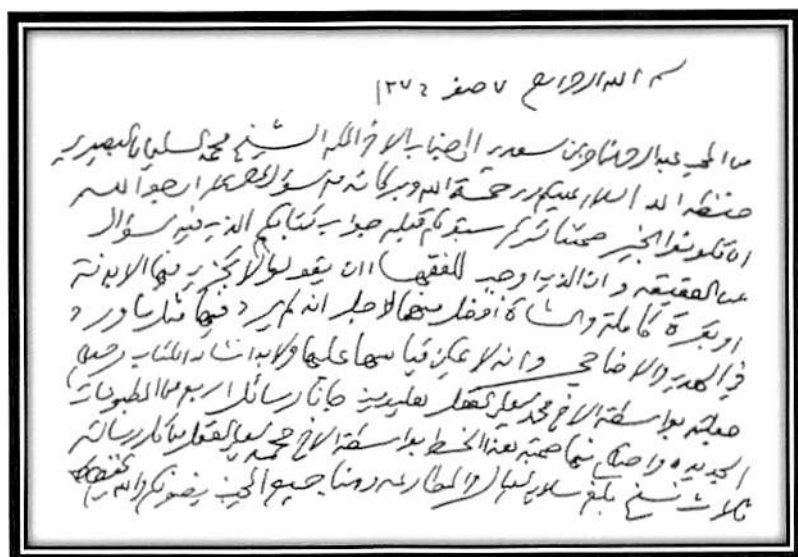 بسم الله الرحمن الرحيم ٧ صفر ١٣٧٤
من المحب عبد الرحمن بن ناصر بن سعدي الى جناب الاخ المكرم الشيخ محمد السليمان البصيري
حفظه الله السلام عليكم ورحمة الله وبركاته مع سؤال عن ارجو الله
ان تكونوا بخير صحتنا تسركم سبق لكم قبله جواب كتابكم الذي فيه سؤال
عن العقيقه وان الذي اوجب للفقهاء ان يقولوا لا يجزي فيها الا بدنة
او بقرة كاملة والشاة افضل منها لاجل انه لم يرد فيها مثل ما ورد
في الهدي والاضاحي وانه لا يمكن قياسها عليها ولا بد انشاء الله الكتاب وصلكم
بواسطة الاخ محمد جانا رسائل اربع من المطبوعات
الجديده واصلكم منها صحبة هذا الخط بواسطة الاخ محمد من كل رسالة
ثلاث نسخ بلغ سلامي العيال ومنا جميع المحبين يخصونكم والله يحفظكم